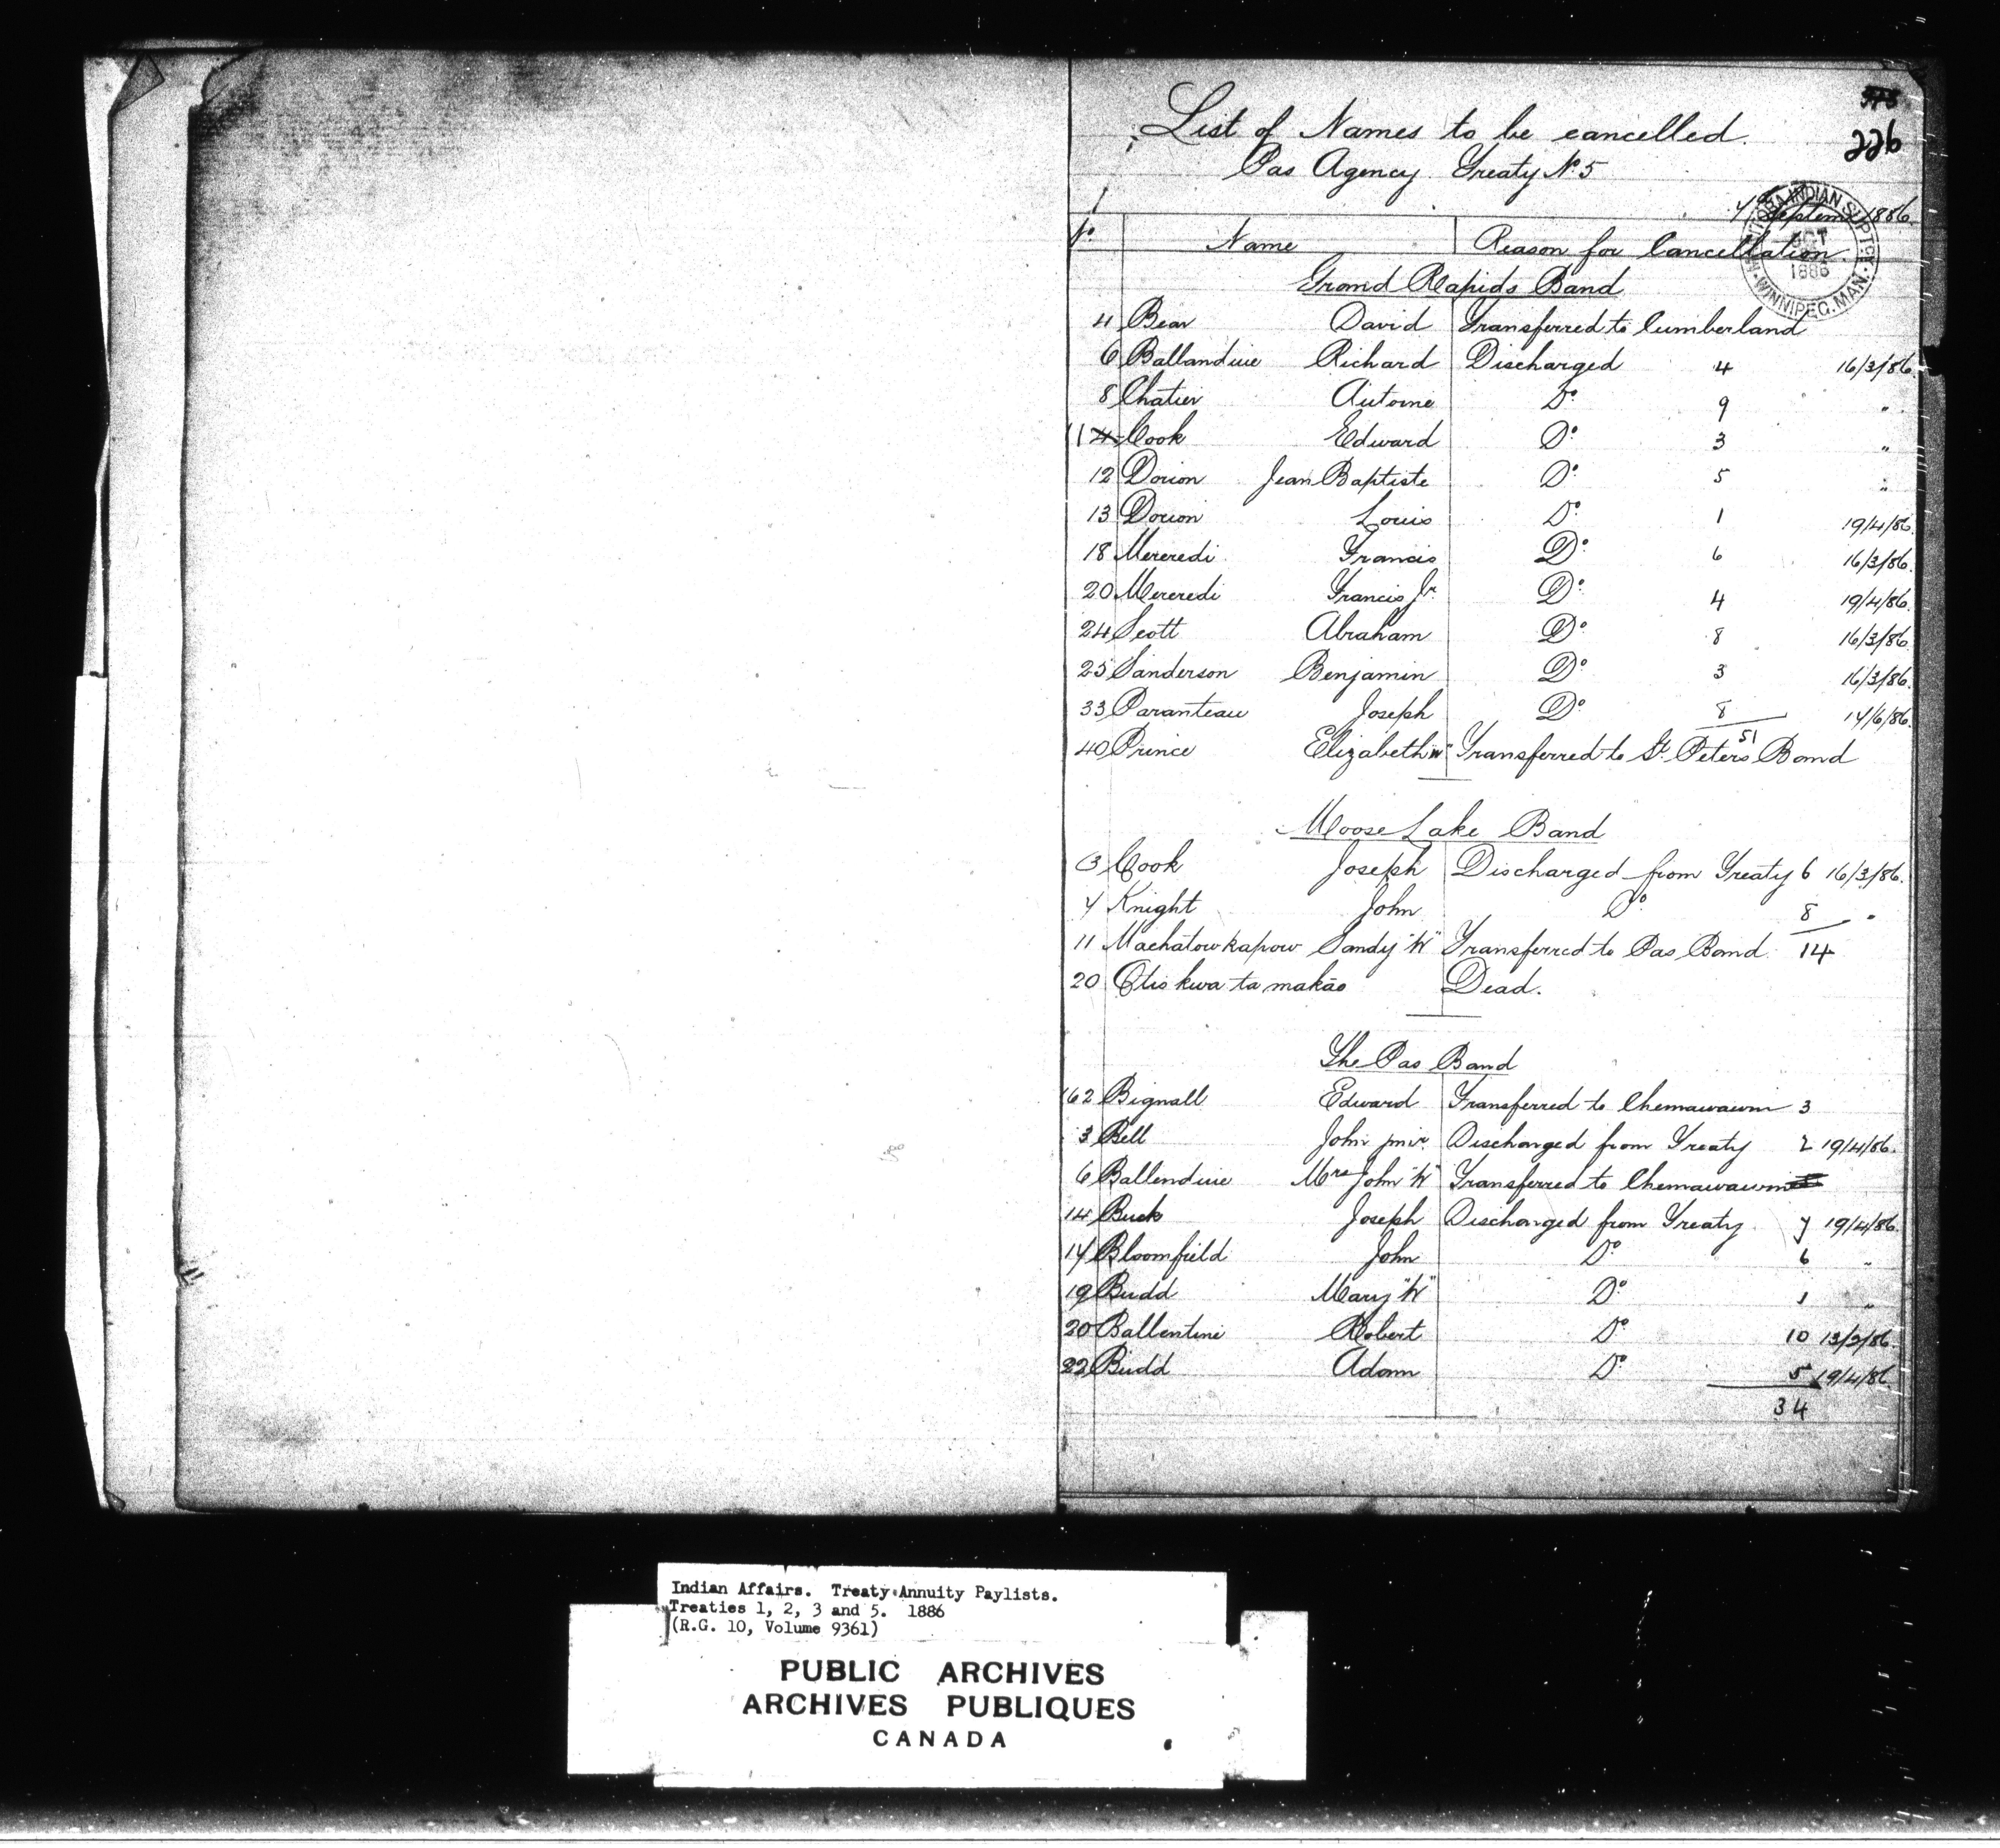 578
226
List of Names to be cancelled.
Pas Agency. Treaty No. 5
7 Septem 1886.
MANITOBA INDIAN SUPTCY.
OCT
1886
WINNIPEG. MAN.
No. Name Reason for Cancellation.
Grand Rapids Band
4 Bear David Transferred to Cumberland
6 Ballandine Richard Discharged 4 16/3/86.
8 Chatier Antoine Do. 9 "
11 Cook Edward Do. 3 "
12 Dorion Jean Baptiste Do. 5 "
13 Dorion Louis Do. 1 19/4/86.
18 Mereredi Francis Do. 6 16/3/86.
20 Mereredi Francis Jr. Do. 4 19/4/86.
24 Scott Abraham Do. 8 16/3/86.
25 Sanderson Benjamin Do. 3 16/3/86.
33 Paranteau Joseph Do. 8 17/6/86.
51
40 Prince Elizabeth "W" Transferred to St. Peters Band
Moose Lake Band
3 Cook Joseph Discharged from Treaty 6 16/3/86.
7 Knight John Do. 8 "
11 Machatowkapow Sandy "W" Transferred to Pas Band. 14
20 Otis kwa ta makāo Dead.
The Pas Band
162 Bignall Edward Transferred to Chemawawin 3
3 Bell John jnir. Discharged from Treaty 2 19/4/86.
6 Ballendine Mrs John "W" Transferred to Chemawawin
14 Buck Joseph Discharged from Treaty. 7 19/4/86.
17 Bloomfield John Do. 6 "
19 Budd Mary "W" Do. 1 "
20 Ballentine Robert Do. 10 13/2/86.
22 Budd Adam Do. 5 19/4/86.
34
Indian Affairs. Treaty Annuity Paylists.
Treaties 1, 2, 3 and 5. 1886
(R.G. 10, Volume 9361)
PUBLIC ARCHIVES
ARCHIVES PUBLIQUES
CANADA